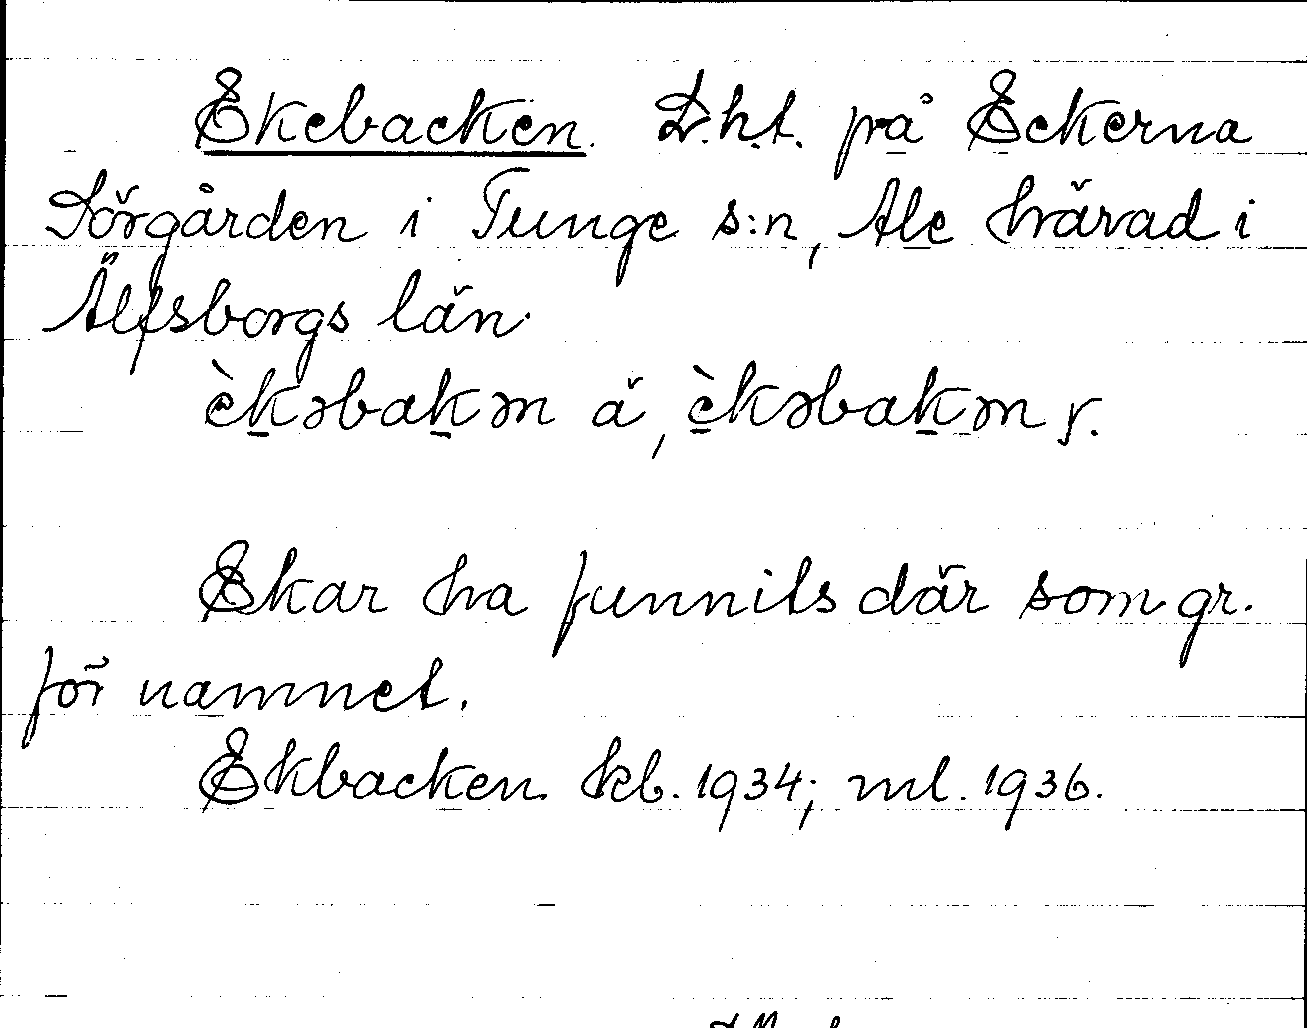 Ekebacken. D.h.t. på Eckerna
Sörgården i Tunge s:n, Ale härad i
Älfsborgs län.
èkəbakən ä, èkəbakən r.
Ekar ha funnits där som gr.
för namnet.
Ekbacken kb. 1934; ml. 1936.